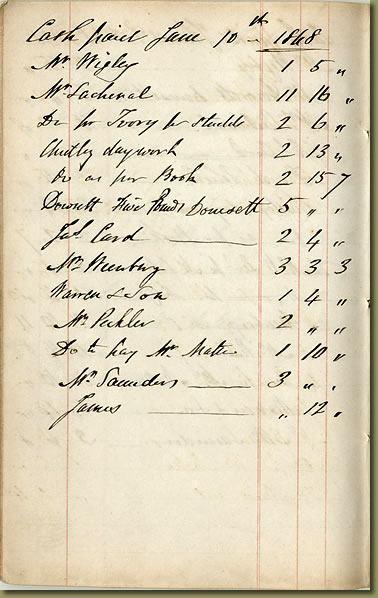 Cash paid June 10th - 1848
Mr Wigley 1 5 "
Mr Lachenal 11 16 "
Do for Ivory for studds 2 6 "
Chidley daywork 2 13 "
Do as per Book 2 15 7
Dowsett Five Pounds Dowsett 5 " "
Jas. Card 2 4 "
Mr 3 3 3
Warren & Son 1 4 "
Mr 2 " "
Do to pay Mr 1 10 "
Mr Saunders 3 " "
James " 12 "